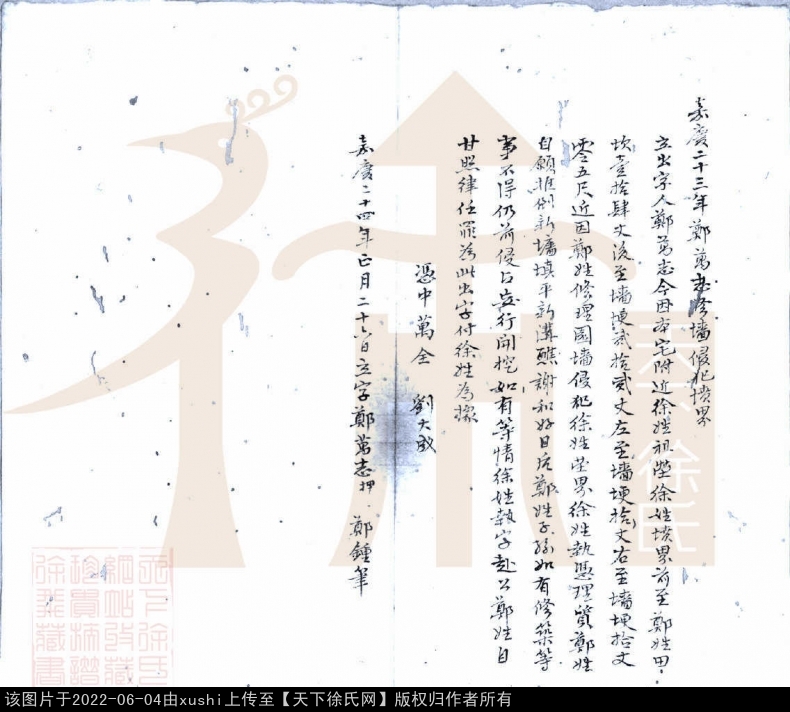 嘉慶二十三年鄭萬志修墻侵犯墳界
立出字人鄭萬志今因本宅附近徐姓祖塋徐姓墳界前至鄭姓田
坎壹拾肆丈後至墻埂貳拾貳丈左至墻埂拾丈右至墻埂拾丈
零五尺近因鄭姓修理園墻侵犯徐姓塋界徐姓執憑理質鄭姓
自願推倒新墻填平新溝醮謝和好日后鄭姓子孫如有修築等
事不得仍前侵占妄行開挖如有等情徐姓執字赴公鄭姓自
甘照律任罪為此出字付徐姓為據
憑中萬全 劉大成
嘉慶二十四年正月二十六日立字鄭萬志押 鄭鍾筆
天下徐氏
该图片于2022-06-04由xushi上传至【天下徐氏网】版权归作者所有